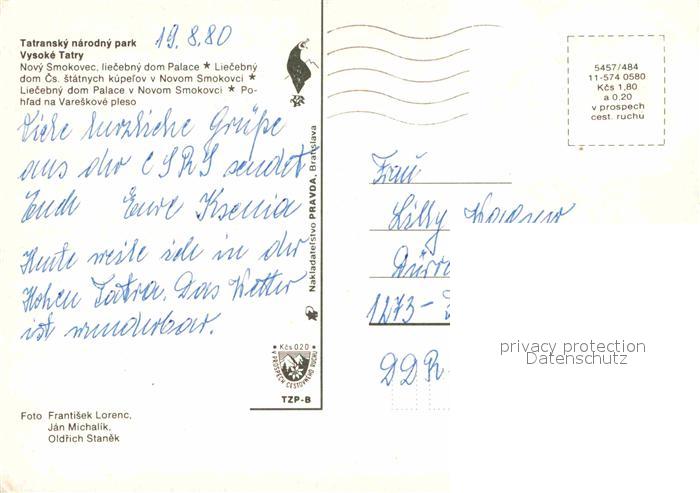 Tatranský národný park
19.8.80
Vysoké Tatry
Nový Smokovec, liečebný dom Palace ★ Liečebný
dom Čs. štátnych kúpeľov v Novom Smokovci ★
Liečebný dom Palace v Novom Smokovci ★ Po-
hľad na Vareškové pleso
Viele herzliche Grüße
aus der CSRS sendet
Euch Eure Ksenia
Heute weile ich in der
Hohen Tatra. Das Wetter
ist wunderbar.
Nakladateľstvo PRAVDA, Bratislava
Kčs 0.20
V PROSPECH CESTOVNÉHO RUCHU
TZP-B
Foto František Lorenc,
Ján Michalík,
Oldřich Staněk
5457/484
11-574 0580
Kčs 1,80
a 0,20
v prospech
cest. ruchu
Frau
Lilly
1273-
DDR
privacy protection
Datenschutz